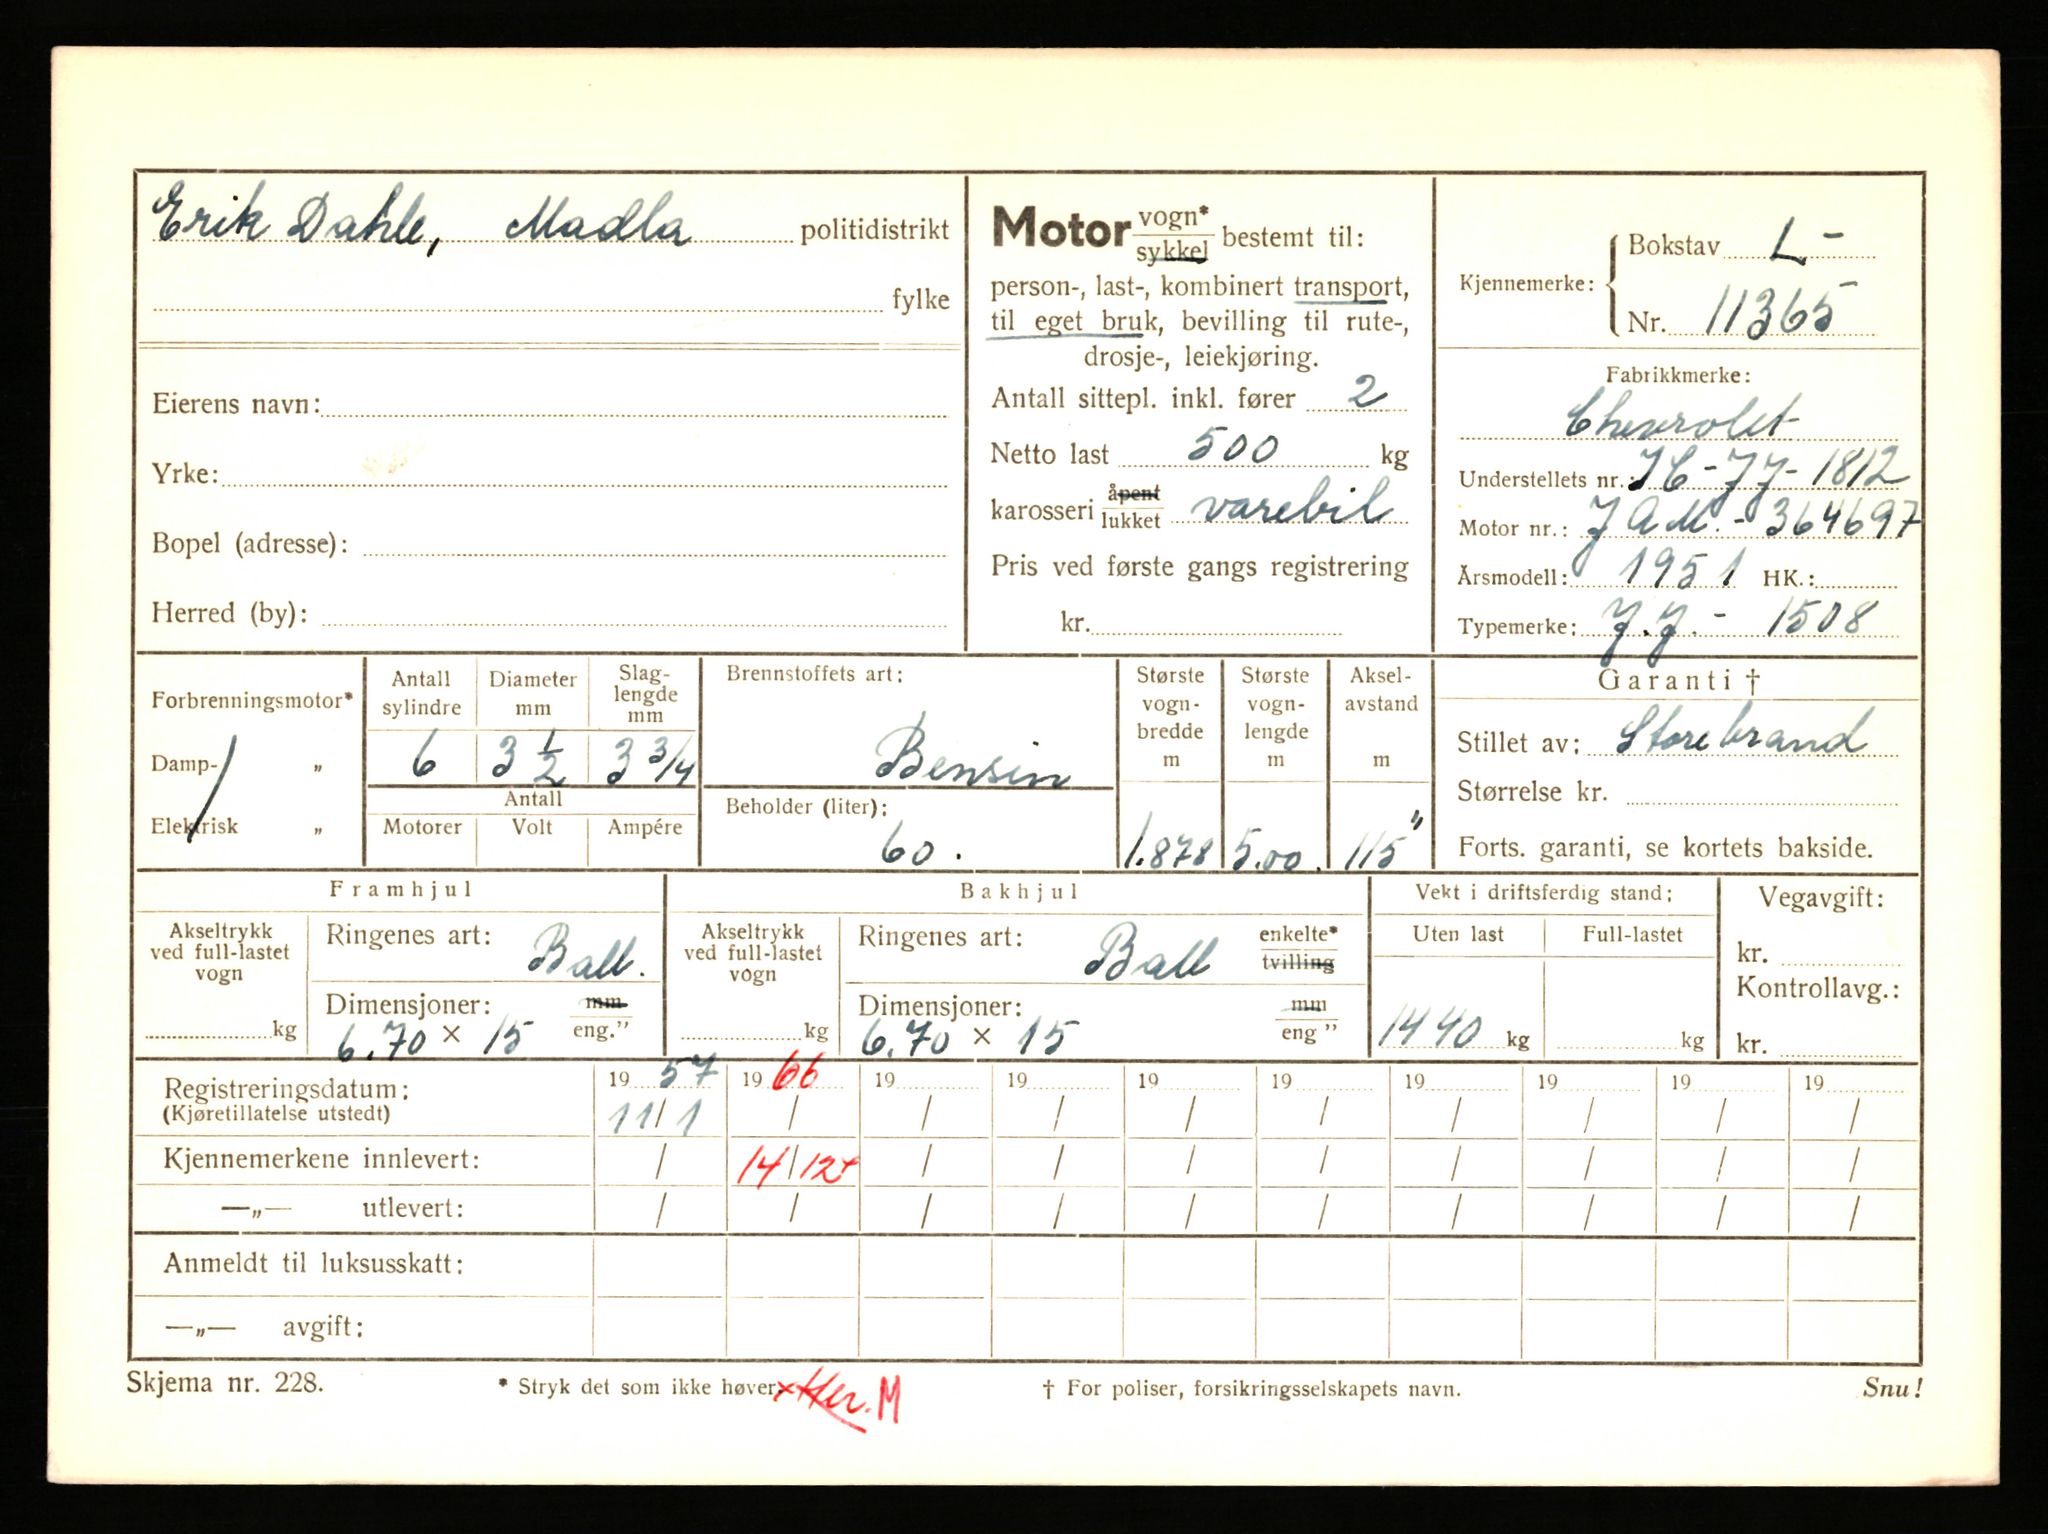 Erik Dahle, Madla politidistrikt
fylke
Eierens navn:
Yrke:
Bopel (adresse):
Herred (by):
Motor vogn* / sykkel bestemt til:
person-, last-, kombinert transport,
til eget bruk, bevilling til rute-,
drosje-, leiekjøring.
Antall sittepl. inkl. fører 2
Netto last 500 kg
karosseri åpent / lukket varebil
Pris ved første gangs registrering
kr.
Kjennemerke: Bokstav L-
Nr. 11365
Fabrikkmerke:
Chevrolet
Understellets nr.: JC-JJ-1812
Motor nr.: JAM.-364697
Årsmodell: 1951 HK.:
Typemerke: J.J.- 1508
Forbrenningsmotor*
Damp- „
Elektrisk „
Antall sylindre 6
Diameter mm 3 1/2
Slag-lengde mm 3 3/4
Antall
Motorer Volt Ampére
Brennstoffets art:
Bensin
Beholder (liter):
60.
Største vogn-bredde m 1.878
Største vogn-lengde m 5.00.
Aksel-avstand m 115"
Garanti †
Stillet av: Storebrand
Størrelse kr.
Forts. garanti, se kortets bakside.
Framhjul
Akseltrykk ved full-lastet vogn kg
Ringenes art: Ball.
Dimensjoner: mm / eng."
6.70 × 15
Bakhjul
Akseltrykk ved full-lastet vogn kg
Ringenes art: Ball enkelte* / tvilling
Dimensjoner: mm / eng"
6.70 × 15
Vekt i driftsferdig stand:
Uten last Full-lastet
1440 kg kg
Vegavgift:
kr.
Kontrollavg.:
kr.
Registreringsdatum: 19 57 19 66 19 19 19 19 19 19 19 19
(Kjøretillatelse utstedt) 11/1 / / / / / / / / /
Kjennemerkene innlevert: / 14/12+ / / / / / / / /
—„— utlevert: / / / / / / / / / /
Anmeldt til luksusskatt:
—„— avgift:
Skjema nr. 228.
* Stryk det som ikke høver.
× Her. M
† For poliser, forsikringsselskapets navn.
Snu!